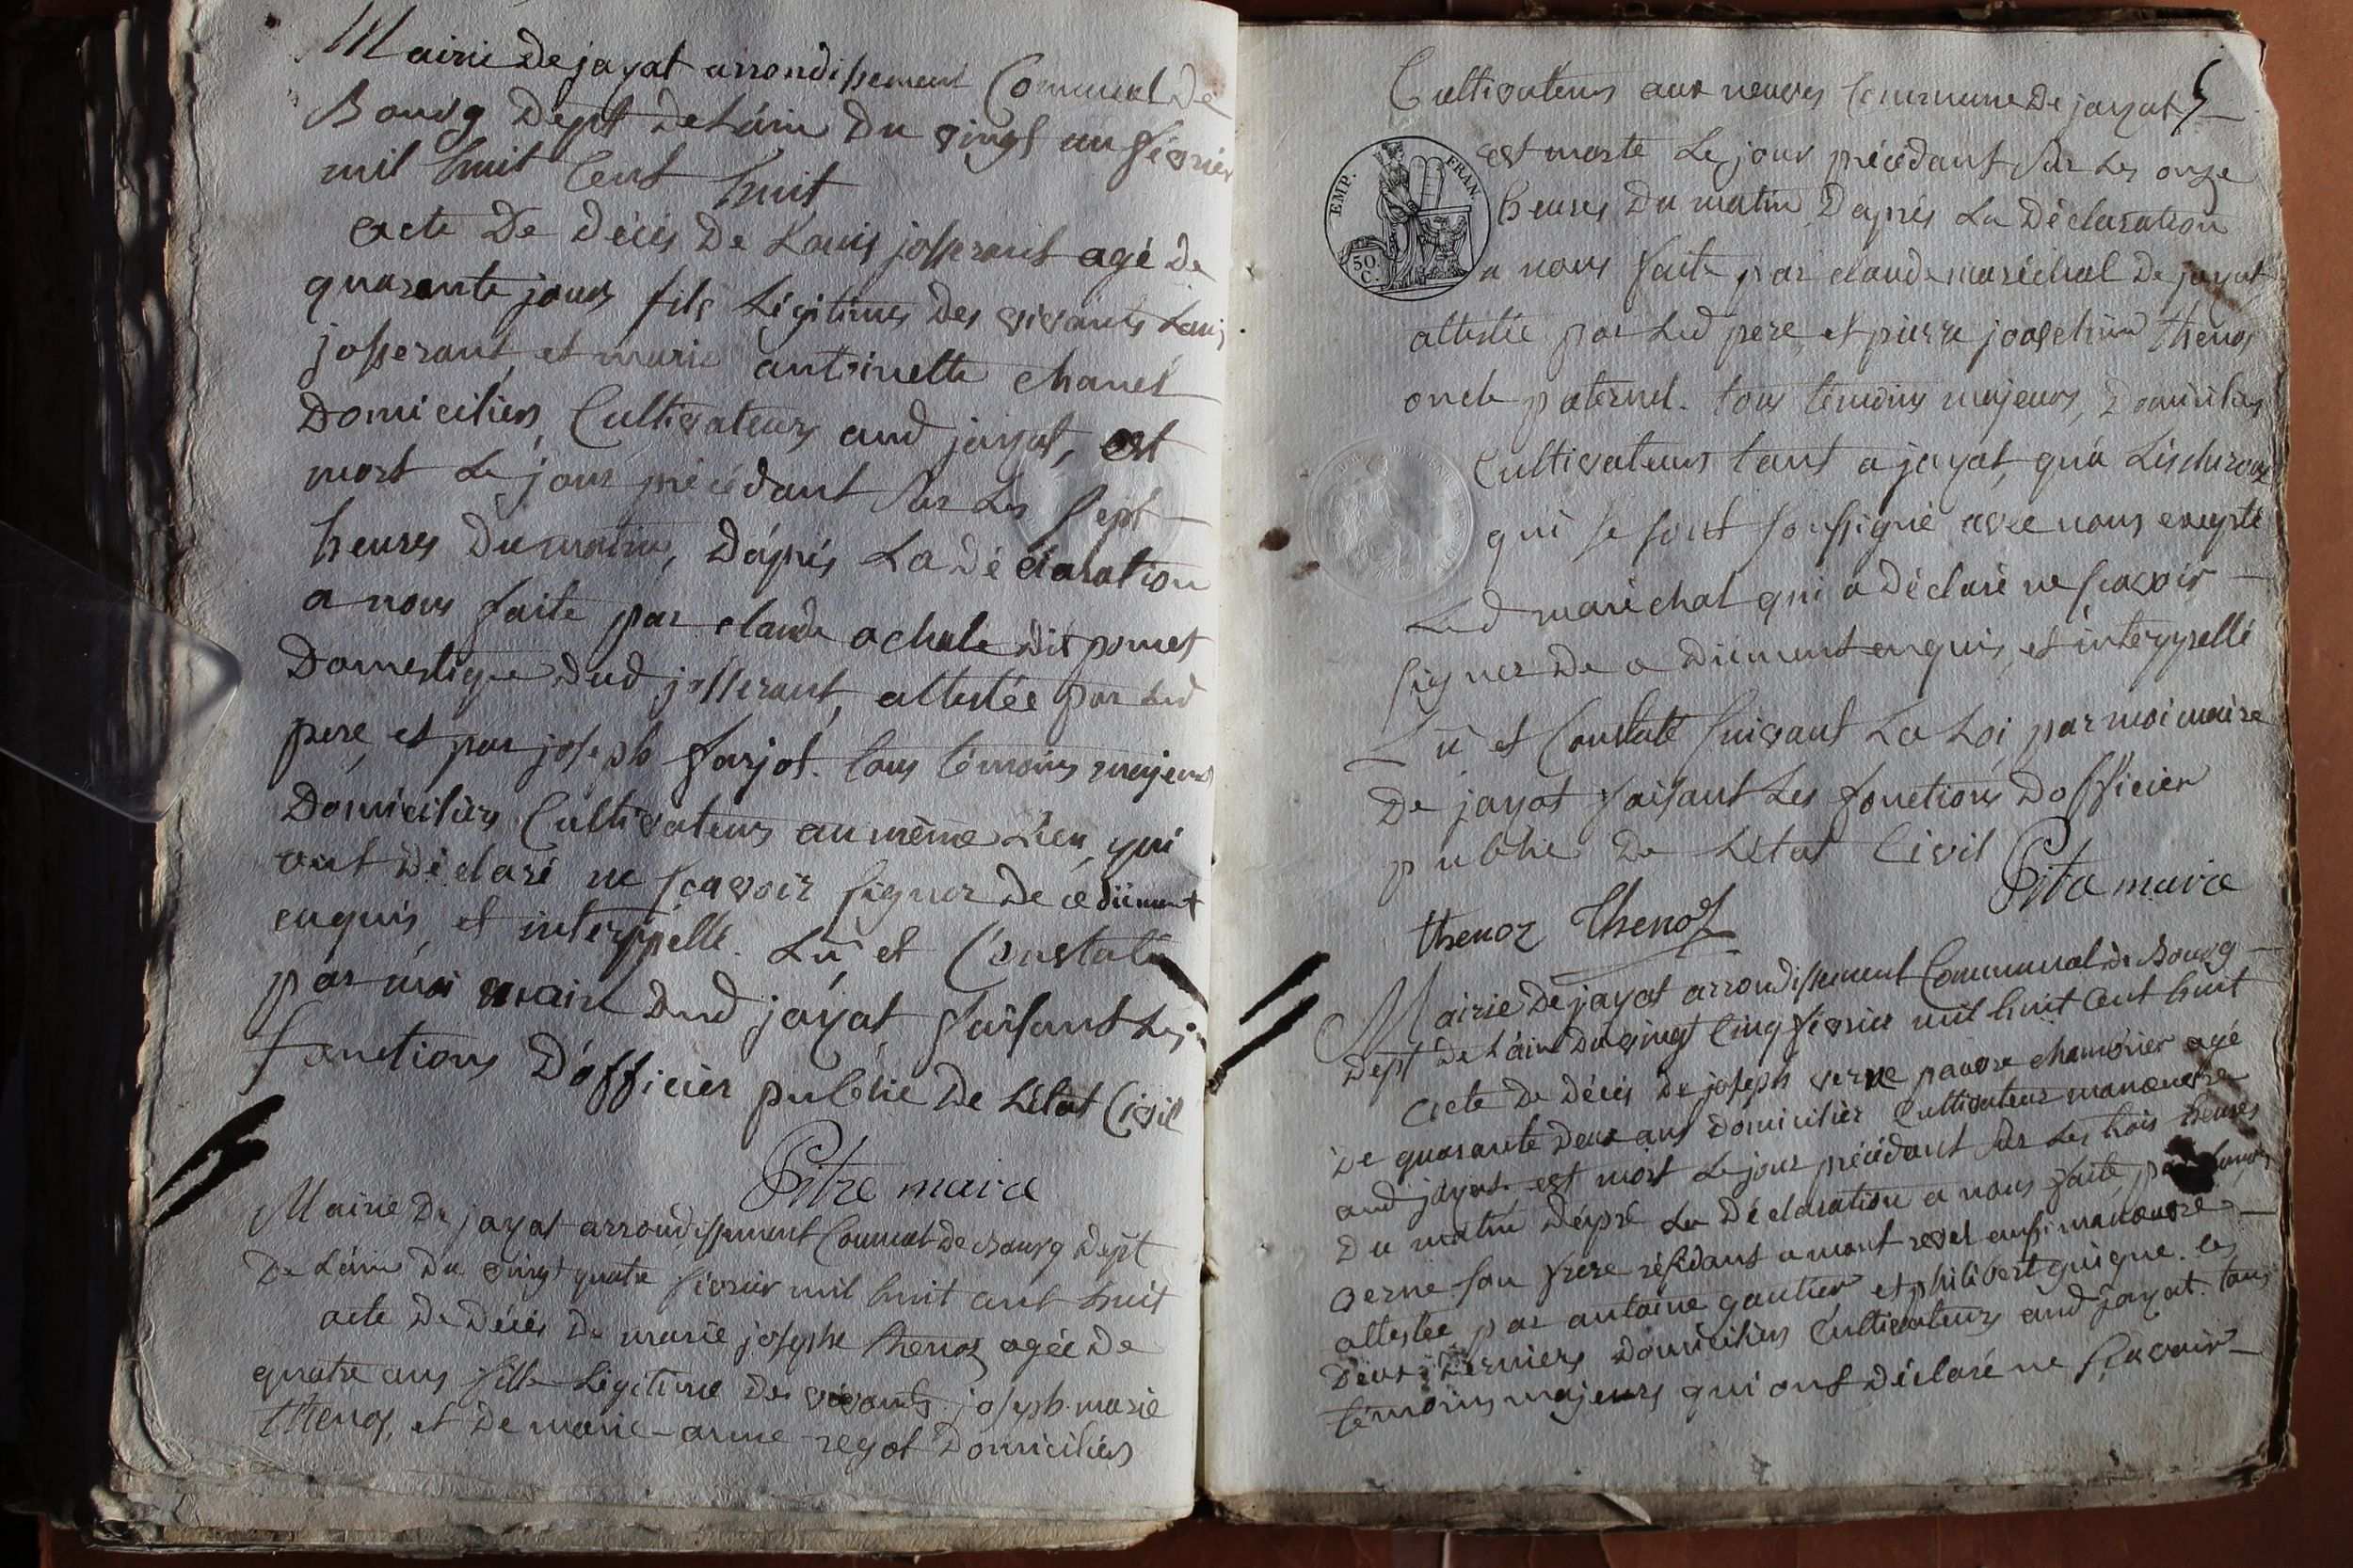 Mairie de jayat arrondissement Communal de
Bourg dept de L'ain du vingt un février
mil huit Cent huit
acte de décès de Louis josserant agé de
quarante jours fils Légitimes des vivants Louis
josserant et marie antoinette chanel
domiciliés Cultivateurs aud jayat, est
mort Le jour précédant Sur Les Sept
heures du matin, d'après La déclaration
a nous faite par claude achale dit pomet
domestique dud josserant, attestée par Led
pere, et par joseph farjot. tous témoins majeurs
domiciliés Cultivateurs au même Lieu, qui
ont déclaré ne scavoir signer de ce dûment
enquis, et interppellé. Lû et Constaté
par moi maire dud jayat, faisant Les
fonctions d'officier publie de L'état Civil
Pitre maire
Mairie de jayat arrondissement Communal de Bourg dept
de L'ain du vingt quatre février mil huit cent huit
acte de décès de marie josephe thenoz agée de
quatre ans fille Légitime des vivants joseph marie
thenoz, et de marie-anne regot domiciliés
Cultivateurs aux neuves Commune de jayat 5
EMP. FRAN.
50 C.
est morte Le jour précédant Sur Les onze
heures du matin, d'après La déclaration
a nous faite par claude maréchal de jayat
attestée par Led pere, et pierre joaschim thenoz
oncle paternel. tous témoins majeurs, domiciliés
Cultivateurs tant a jayat, qu'a Lescheroux
qui se sont soussigné avec nous excepté
Led maréchal qui a déclaré ne scavoir
signer de ce dûment enquis, et interppellé
Lû et Constaté suivant La Loi par moi maire
de jayat faisant Les fonctions d'officier
publie de L'état Civil
Pitre maire
thenoz thenoz
Mairie de jayat arrondissement Communal de Bourg
dept de L'ain du vingt Cinq février mil huit Cent huit
acte de décès de joseph verne pauvre chamorier agé
de quarante deux ans domicilier Cultivateur manoeuvre
aud jayat, est mort Le jour précédant Sur Les trois heures
du matin d'après La déclaration a nous faite, par
verne son frere résidant a mont revel aussi manoeuvre
attestée par antoine gautier et philibert guigue. les
deux derniers domiciliés Cultivateurs aud jayat. tous
témoins majeurs qui ont déclaré ne scavoir